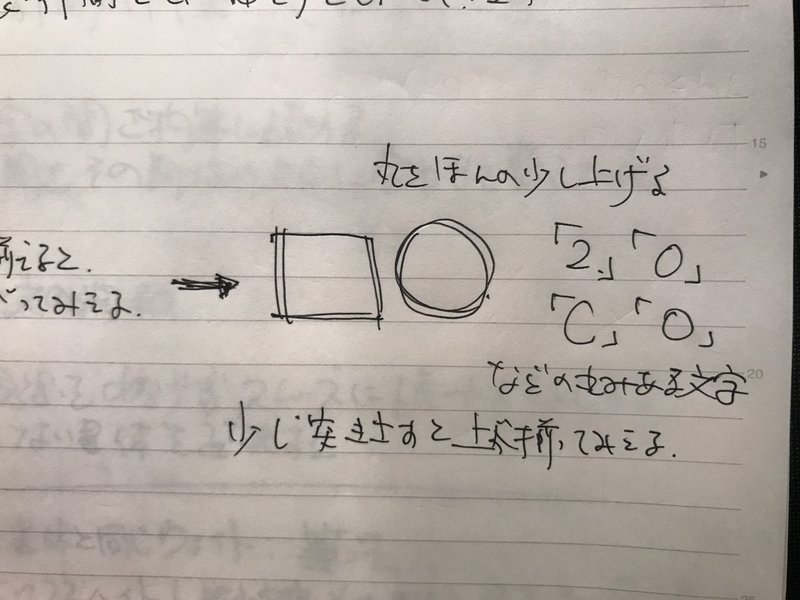 丸をほんの少し上げる
揃えると、
ってみえる。
「2」「O」
「C」「O」
などの丸みある文字
少し突き出すと上が揃ってみえる。
15
20